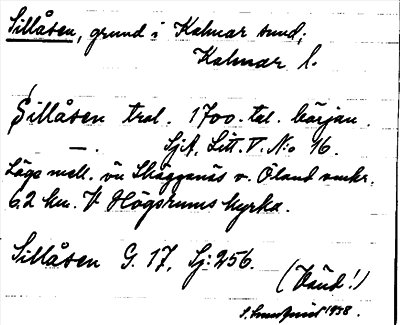 Sillåsen, grund i Kalmar sund;
Kalmar l.
Sillåsen trol. 1700-tal. början.
—. Sjk. Litt. V. N:o 16.
Lågs mell. ön Skäggenäs o. Öland omkr.
6.2 km. V. Högsrums kyrka.
Sillåsen G. 17, Sj: 256.
(Vänd!)
1938.